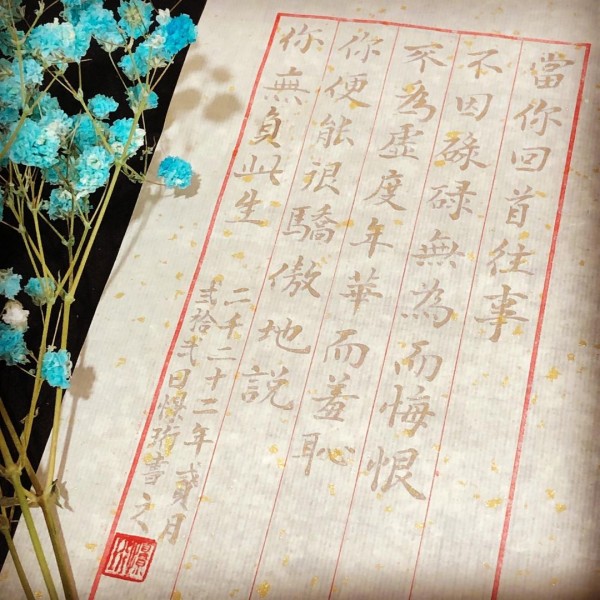 當你回首往事
不因碌碌無為而悔恨
不為虛度年華而羞恥
你便能很驕傲地說
你無負此生
二千二十二年貳月
弍拾弍日珩書之